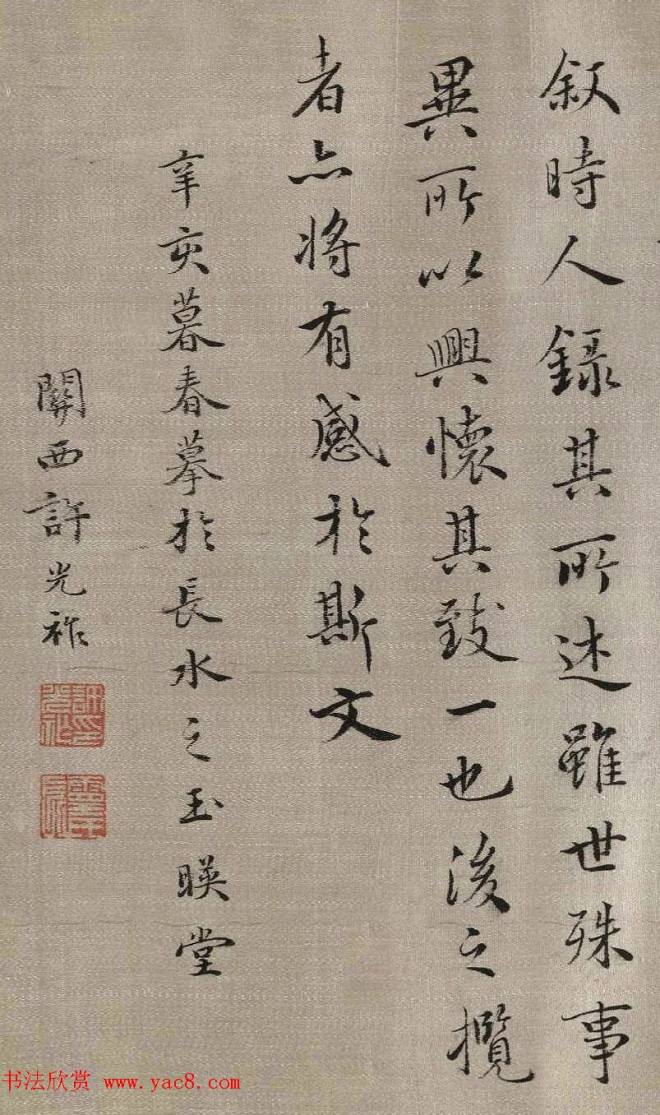 叙時人錄其所述雖世殊事
異所以興懷其致一也後之攬
者亦將有感於斯文
辛亥暮春摹於長水之玉暎堂
關西許光祚
书法欣赏 www.yac8.com